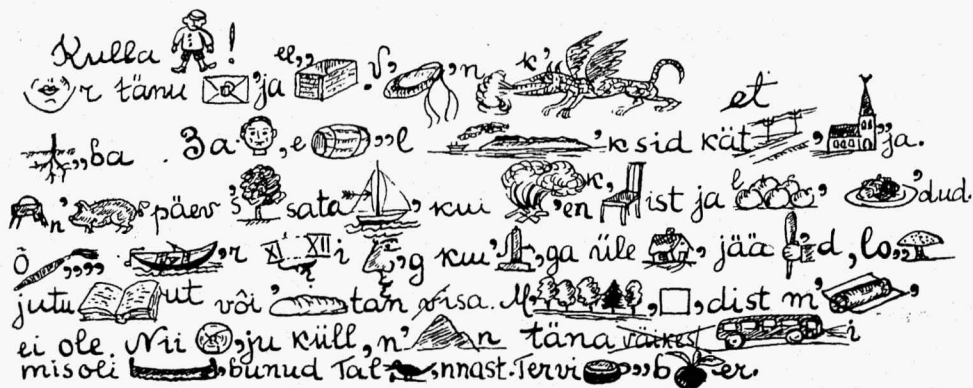 Kulla !
r tänu 'ja el,, . V, ' 'n k'
et
,,ba . 3a ,e ,,l 'ksid kät , ,,ja.
'n' päev 's sata , kui k, 'en ist ja l , 'dud.
õ ,,,, , 'r XI XII i , 'g kuu' , ,ga üle , jää 'd, lo,,
jutu ut või ' tan visa. M , , dist m' ,
ei ole. Nii ,ju küll, n' n täna väikest i
mis oli , bunud Tal ,nnast. Tervi ,,,b er.